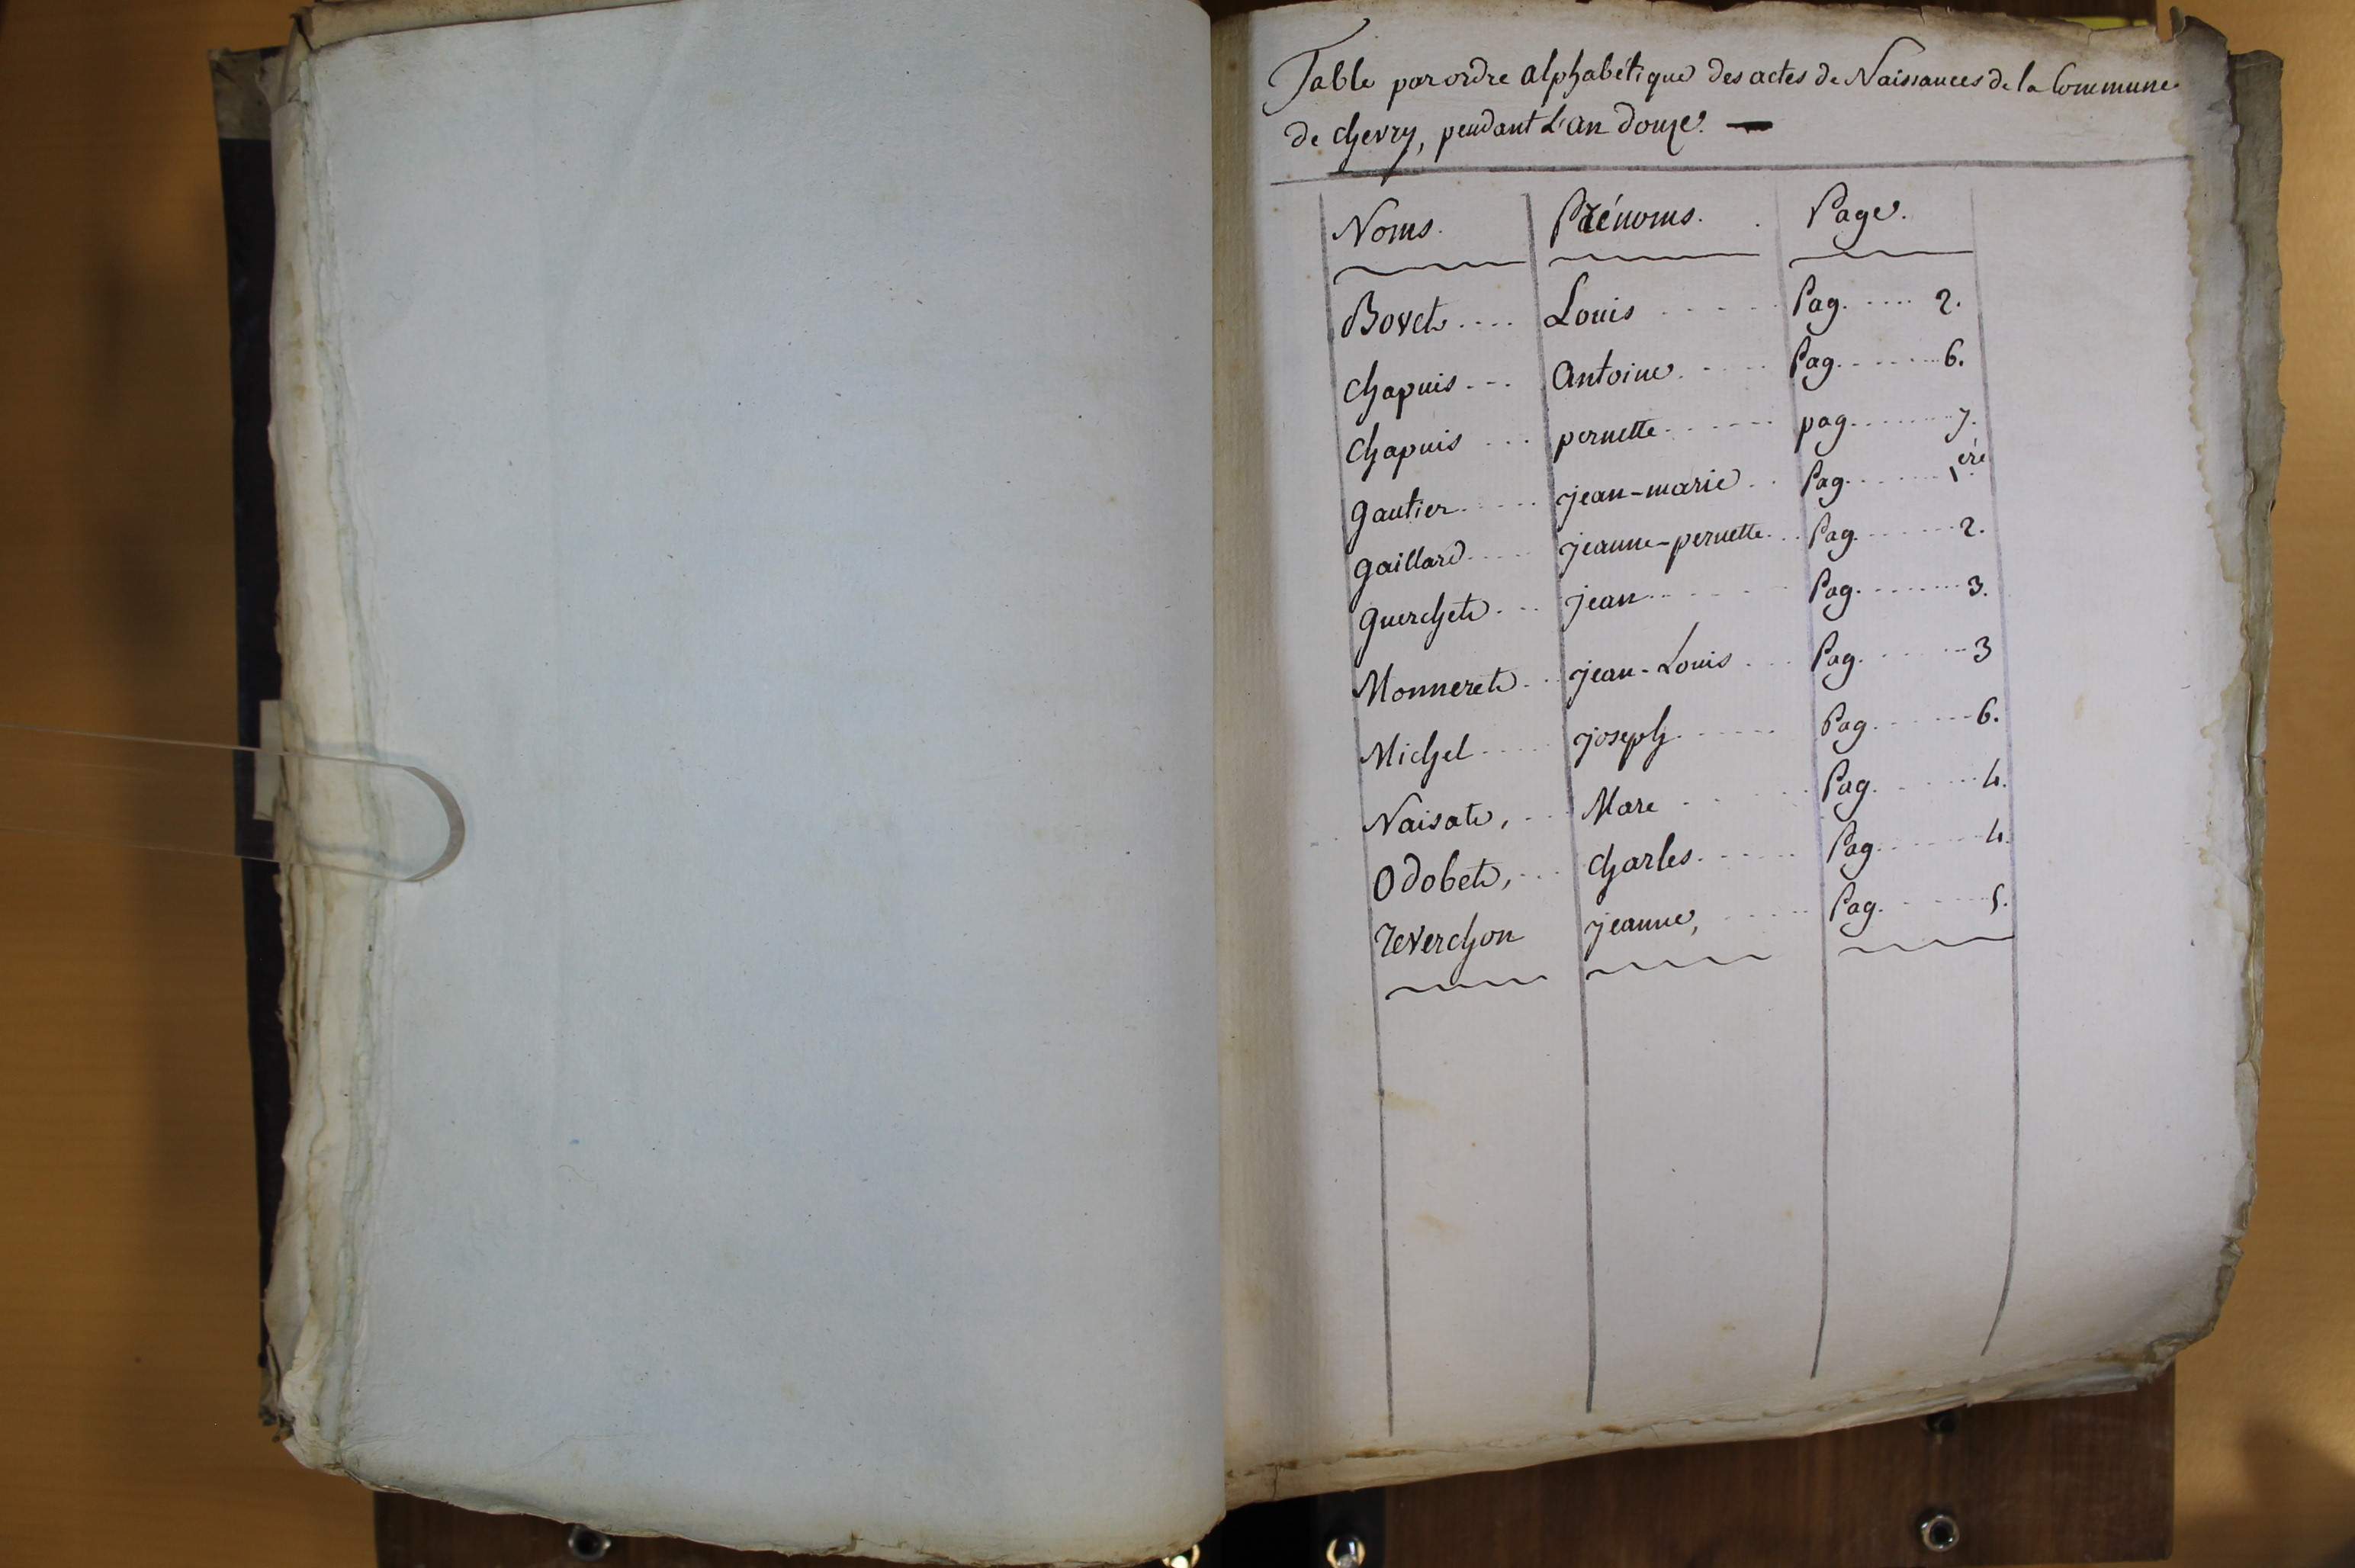 Table par ordre alphabétique des actes de Naissances de la Commune
de Chevry, pendant L'an douze. —
Noms. Prénoms. Page.
Bovet .... Louis ..... Pag. .... 2.
Chapuis ... Antoine. .... Pag. ...... 6.
Chapuis ... pernette ...... pag. ...... 7.
Gautier ..... jean-marie .. Pag. ...... 1ère
Gaillard ..... jeanne-pernette ... Pag. ...... 2.
Guerchet ... jean ...... Pag. ...... 3.
Monneret ... jean-Louis ... Pag. ...... 3
Michel ..... joseph ...... Pag. ...... 6.
Naisat, ... Marc ..... Pag. ..... 4.
Odobet, ... Charles ..... Pag. ..... 4.
Reverchon jeanne, ..... Pag. ..... 5.